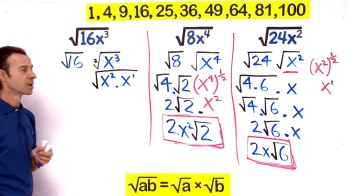 1, 4, 9, 16, 25, 36, 49, 64, 81, 100
√16x³
√16 ²√x³
√x²·x¹
√8x⁴
√8 √x⁴
√4·√2 (x⁴)^½
2√2 · x²
2x²√2
√24x²
√24 √x² (x²)^½
√4·6 · x x¹
√4·√6 · x
2√6 · x
2x√6
√ab = √a × √b